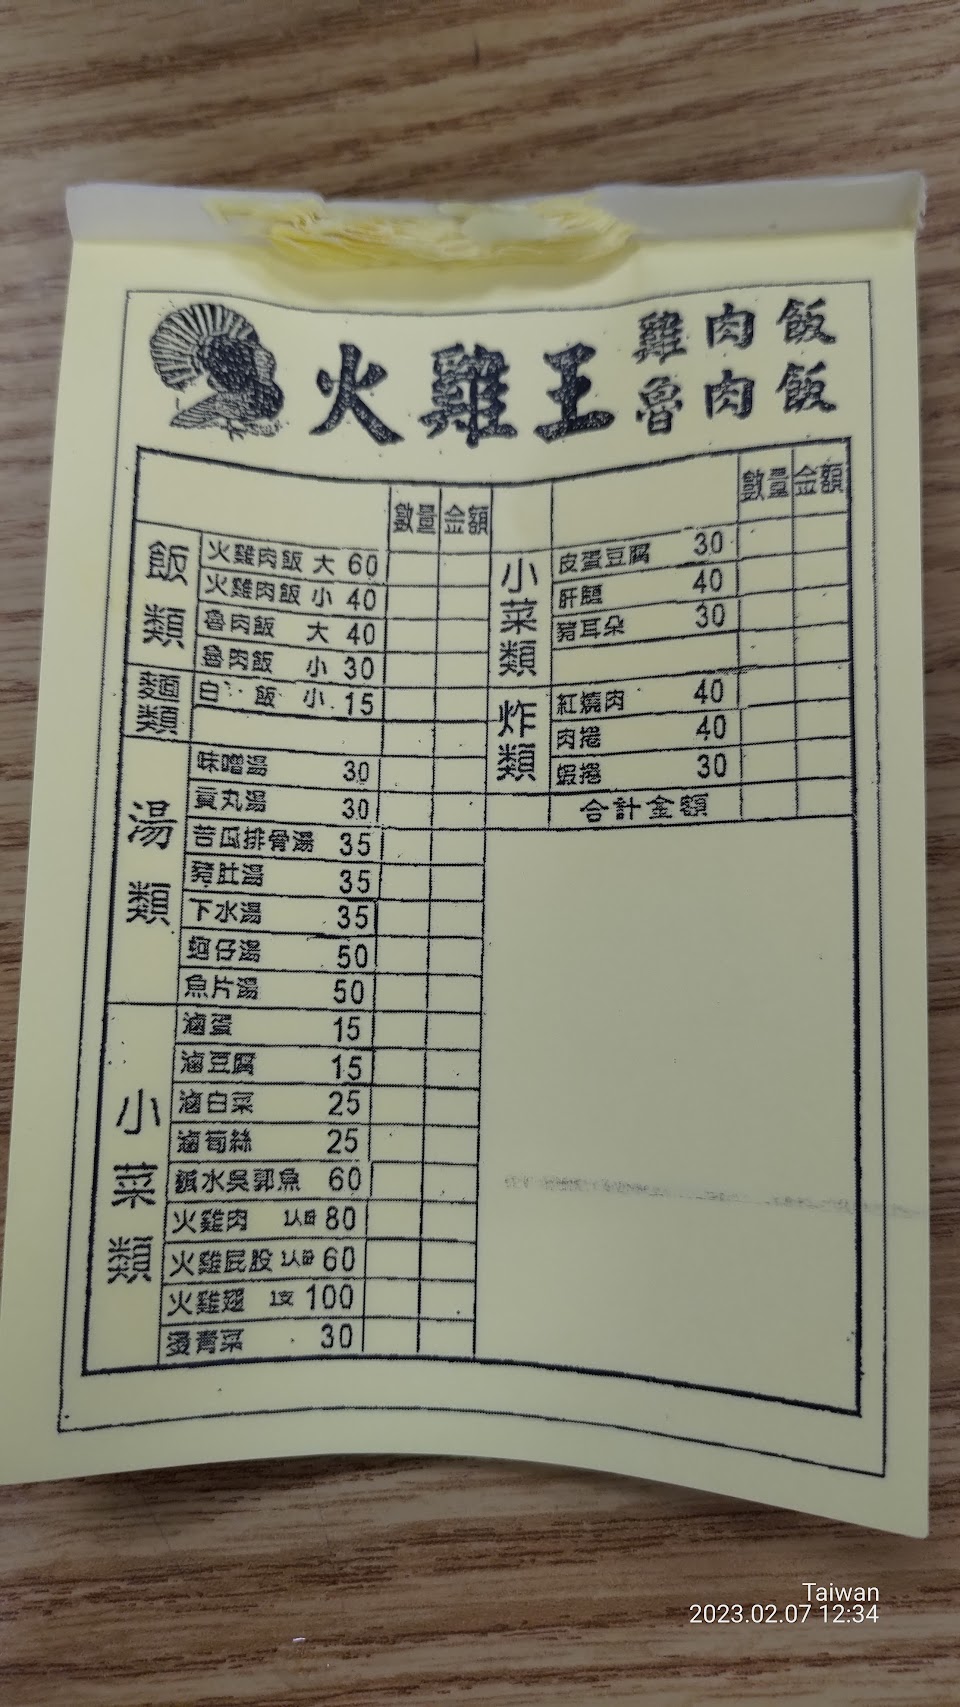 火雞王
雞肉飯
魯肉飯
數量 金額
飯類
火雞肉飯 大 60
火雞肉飯 小 40
魯肉飯 大 40
魯肉飯 小 30
麵類
白飯 小 15
湯類
味噌湯 30
貢丸湯 30
苦瓜排骨湯 35
豬肚湯 35
下水湯 35
蚵仔湯 50
魚片湯 50
小菜類
滷蛋 15
滷豆腐 15
滷白菜 25
滷筍絲 25
鹹水吳郭魚 60
火雞肉 1人份 80
火雞屁股 1人份 60
火雞翅 1支 100
燙青菜 30
數量 金額
小菜類
皮蛋豆腐 30
肝膶 40
豬耳朵 30
炸類
紅燒肉 40
肉捲 40
蝦捲 30
合計金額
Taiwan
2023.02.07 12:34